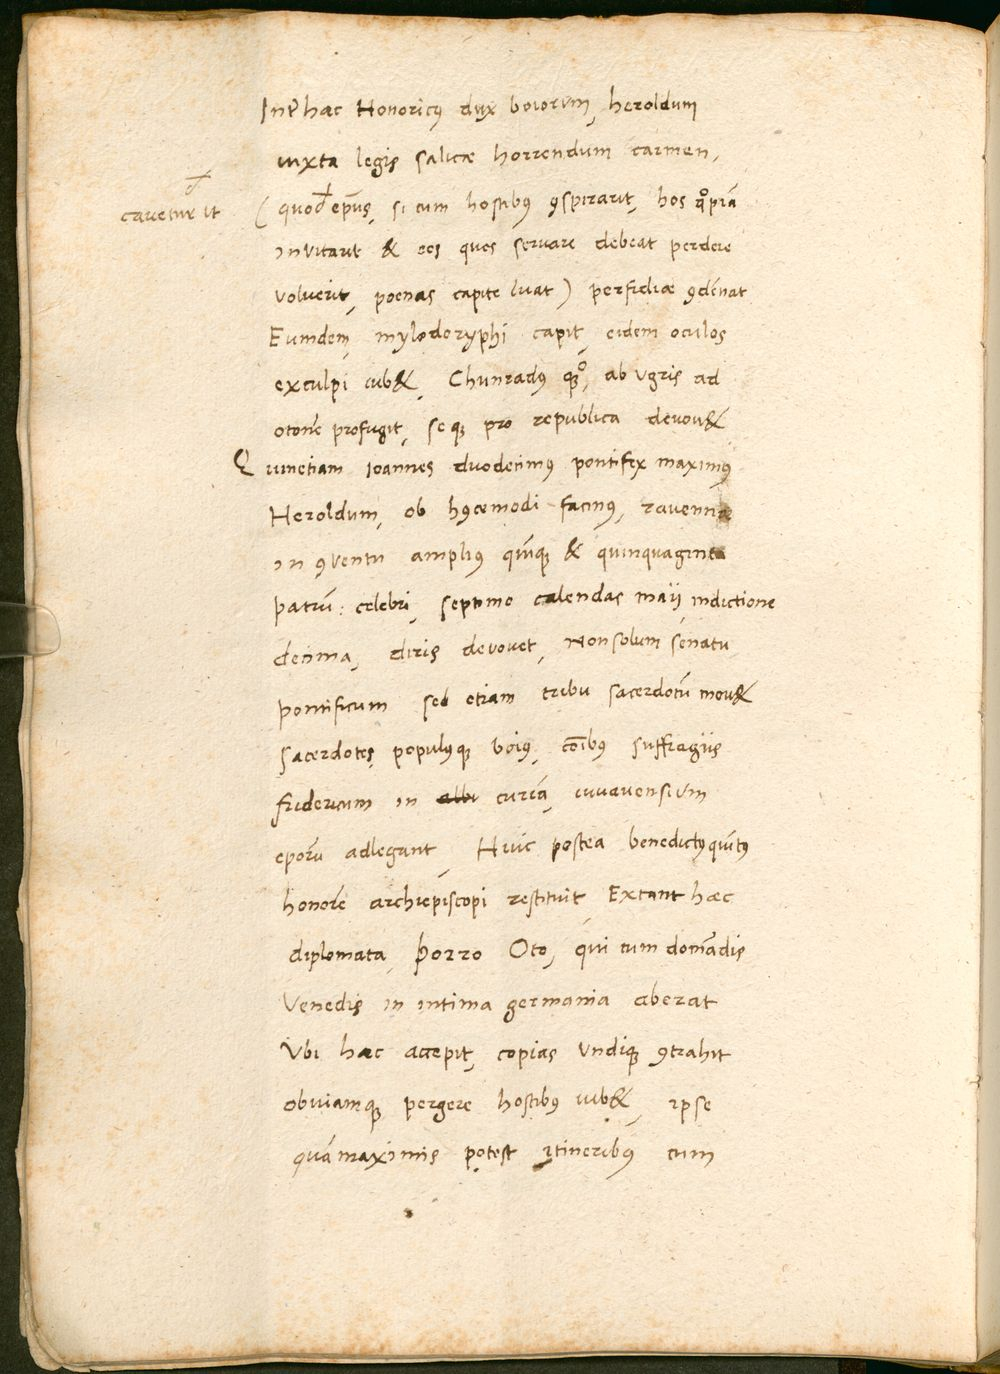 Int͛ hac Honoricꝰ dux boiorum, heroldum
iuxta legis salicæ horrendum carmen,
cavetur ut
( quod ep̄us, si cum hostibꝰ ꝯspirarit, hos
invitarit & eos quos servare debeat perdere
voluerit, poenas capite luat ) perfidiæ ꝯdēnat
Eumdem, mylodoryphi capit, eidem oculos
exculpi iub&, Chunradꝰ qꝫͦ, ab ugris ad
otonē profugit, se qꝫ pro republica devou&
Quinetiam ioannes duodecimꝰ pontifex maximꝰ
Heroldum, ob hꝰcemodi facinꝰ, ravennæ
in ꝯventu ampliꝰ quīqꝫ & quinquaginta
patrū: celebri, septimo calendas maij indictione
decima, diris devovet, Non solum senatu
pontificum sed etiam tribu sacerdotū mou&
sacerdotes, populꝰqꝫ boiꝰ, cōibꝰ suffragiis
fridericum in albi curiā, iuvavensium
eporū adlegunt, Huic postea benedictꝰ quītꝰ
honorē archiepiscopi restituit Extant hæc
diplomata, Porro Oto, qui tum domādis
Venedis in intima germania aberat
Vbi hæc accepit, copias undiqꝫ ꝯtrahit
obviamqꝫ pergere hostibꝰ iub&, ipse
quāmaximis potest itineribꝰ cum